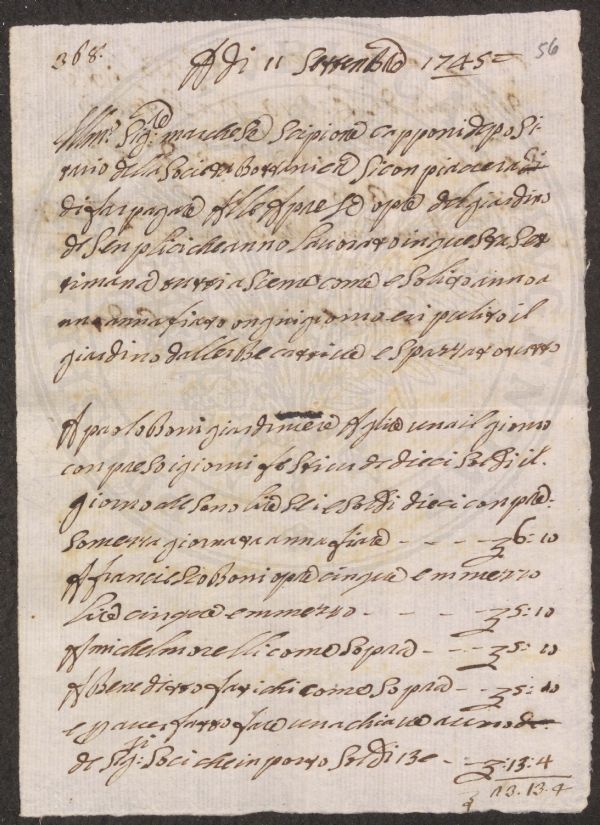 368. 56
A di 11 Settenbre 1745
Illmo: Sig:re marchese Scipione Capponi depo Si
tario della Società Bottanica Si conpiacera
di far pagare Alle Apreso opre del giardino
de Senplici che anno lavorato in questa Set
timana tutti asieme come e Solito anno a
anafiato ongni giorno e ripulito il
giardino dallerbe cattive e Spazzato tutto
A paolo Boni giardiniere A lire una il giorno
conpreso i giorni festivi de dieci Soldi il
giorno che Sono lire Sei e Soldi dieci conpre
So mezza giornata annafiare - - - - 6:10
A francescho Boni opre cinque e mmezzo
lire cinque e mmezzo - - - - 5:10
A michel morelli come Sopra - - - 5:10
A Benedetto farichi come Sopra - - 5:10
e per aver fatto fare una chiave a uno
de Sig:ri Soci che inporto Soldi 13 - - :13:4
13.13.4